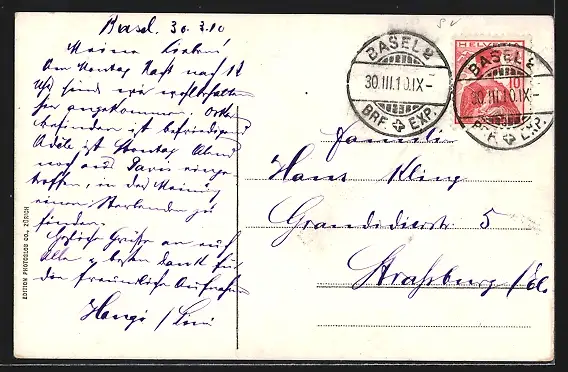 Basel. 30.3.10
Meine Lieben!
Am Montag Nacht nach 12
Uhr sind wir wohlbehalten
hier angekommen.
befinden ist befriedigend
Adèle ist Montag Abend
noch aus Paris einge-
troffen, in der Meinung
einen Sterbenden zu
finden.
Herzliche Grüsse an euch
Alle & besten Dank für
die freundliche Aufnahme
Familie
Hans Kling
Grandidierstr. 5
Straßburg i/Els.
BASEL 2
30.III.10.IX-
BRF. EXP.
HELVETIA
BASEL 2
30.III.10.IX-
BRF. EXP.
EDITION PHOTOGLOB CO., ZÜRICH